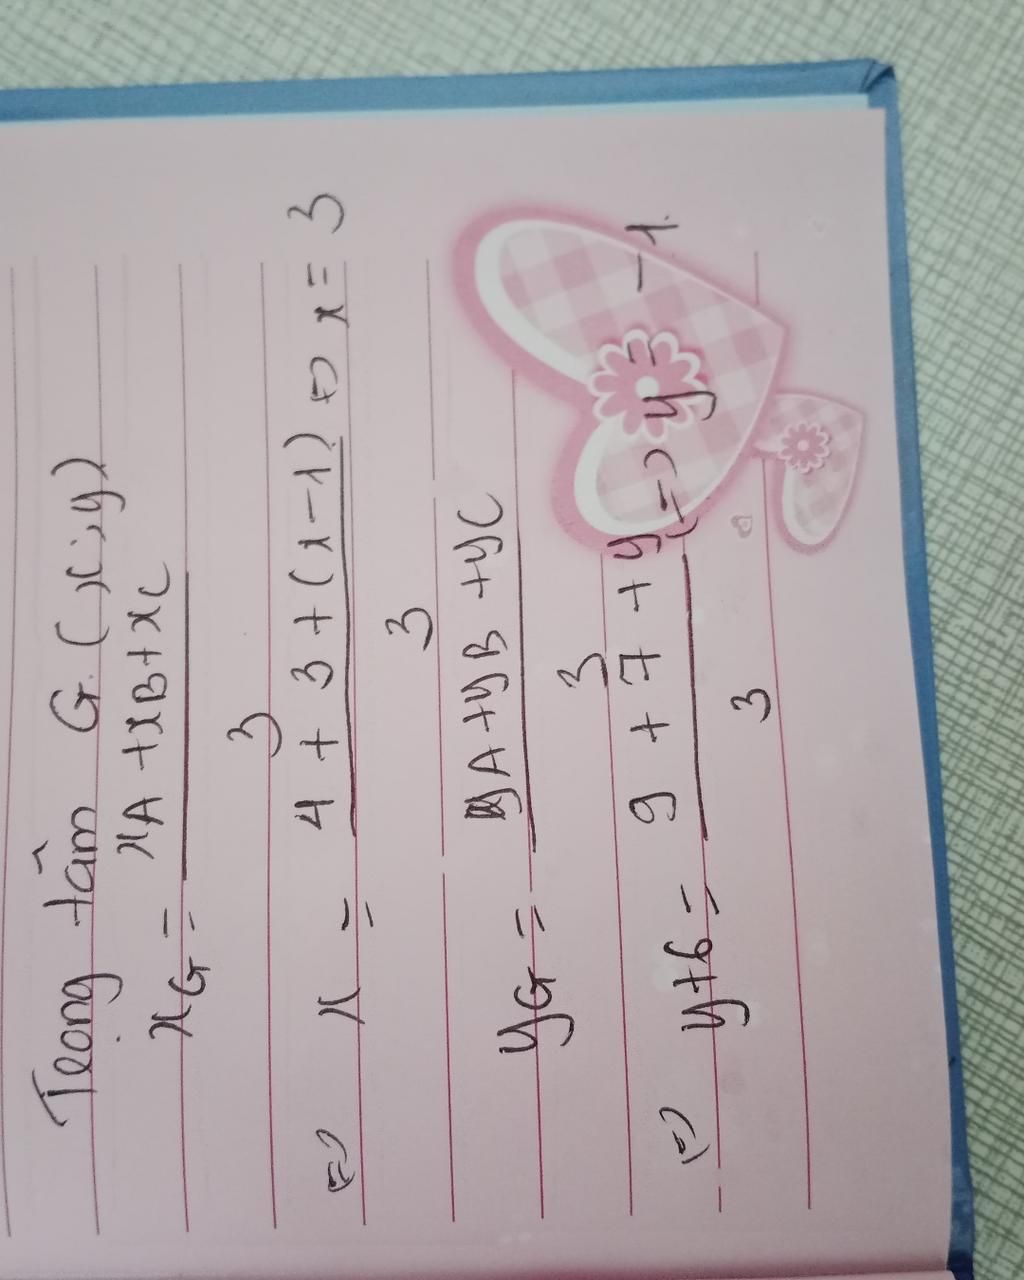 Trọng tâm G (x;y)
xG = xA + xB + xC
3
⇔ x = 4 + 3 + (x-1) ⇔ x = 3
3
yG = yA + yB + yC
3
⇔ y+6 = 9 + 7 + y ⇔ y = -1.
3